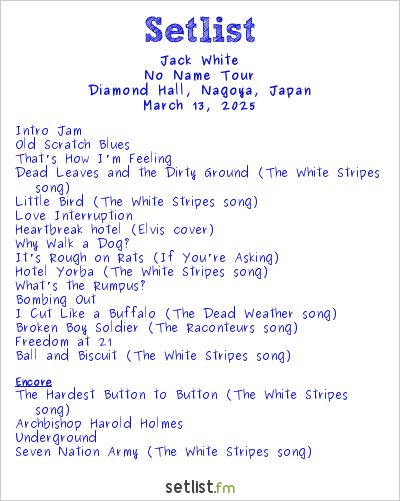 Setlist
Jack White
No Name Tour
Diamond Hall, Nagoya, Japan
March 13, 2025
Intro Jam
Old Scratch Blues
That's How I'm Feeling
Dead Leaves and the Dirty Ground (The White Stripes
song)
Little Bird (The White Stripes song)
Love Interruption
Heartbreak hotel (Elvis cover)
Why Walk a Dog?
It's Rough on Rats (If You're Asking)
Hotel Yorba (The White Stripes song)
What's the Rumpus?
Bombing Out
I Cut Like a Buffalo (The Dead Weather song)
Broken Boy Soldier (The Raconteurs song)
Freedom at 21
Ball and Biscuit (The White Stripes song)
Encore
The Hardest Button to Button (The White Stripes
song)
Archbishop Harold Holmes
Underground
Seven Nation Army (The White Stripes song)
setlist.fm